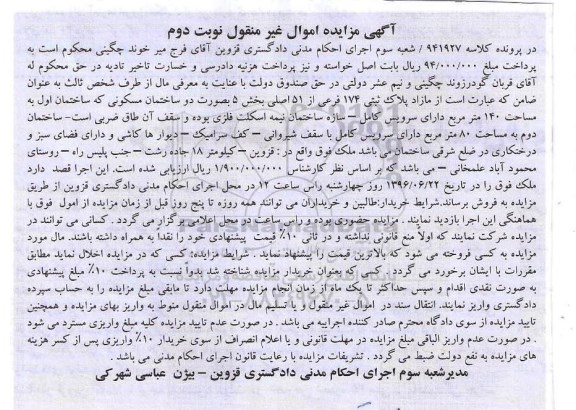 آگهی مزایده اموال غیر منقول نوبت دوم
در پرونده کلاسه ۹۴۱۹۲۷ / شعبه سوم اجرای احکام مدنی دادگستری قزوین آقای فرج میر خوند چگینی محکوم است به
پرداخت مبلغ ۹۴/۰۰۰/۰۰۰ ریال بابت اصل خواسته و نیز پرداخت هزینه دادرسی و خسارت تاخیر تادیه در حق محکوم له
آقای قربان گودرزوند چگینی و نیم عشر دولتی در حق صندوق دولت با عنایت به معرفی مال از طرف شخص ثالث به عنوان
ضامن که عبارت است از مازاد پلاک ثبتی ۱۷۴ فرعی از ۵۱ اصلی بخش ۵ بصورت دو ساختمان مسکونی که ساختمان اول به
مساحت ۱۴۰ متر مربع دارای سرویس کامل – سازه ساختمان نیمه اسکلت فلزی بوده و سقف آن طاق ضربی است- ساختمان
دوم به مساحت ۸۰ متر مربع دارای سرویس کامل با سقف شیروانی – کف سرامیک – دیوار ها کاشی و دارای فضای سبز و
درختکاری در ضلع شرقی ساختمان می باشد ملک فوق واقع در : قزوین – کیلومتر ۱۸ جاده رشت – جنب پلیس راه – روستای
محمود آباد علمخانی – می باشد که بر اساس نظر کارشناس ۱/۹۰۰/۰۰۰/۰۰۰ ریال ارزیابی شده است. این اجرا قصد دارد
ملک فوق را در تاریخ ۱۳۹۶/۰۶/۲۲ روز چهارشنبه راس ساعت ۱۲ در محل اجرای احکام مدنی دادگستری قزوین از طریق
مزایده به فروش برساند.شرایط خریدار:طالبین و خریداران می توانند همه روزه تا پنج روز قبل از زمان مزایده از امول فوق با
هماهنگی این اجرا بازدید نمایند . مزایده حضوری بوده و راس ساعت در محل اعلامی برگزار می گردد . کسانی می توانند در
مزایده شرکت نمایند که اولاً منع قانونی نداشته و در ثانی ۱۰٪ قیمت پیشنهادی خود را نقدا به همراه داشته باشند. مال مورد
مزایده به کسی فروخته می شود که بالاترین قیمت را پیشنهاد نماید . شرایط مزایده: کسی که در مزایده اخلال نماید مطابق
مقررات با ایشان برخورد می گردد . کسی که بعنوان خریدار مزایده شناخته شد بدواً نسبت به پرداخت ۱۰٪ مبلغ پیشنهادی
به صورت نقدی اقدام و سپس حداکثر تا یک ماه از زمان انجام مزایده مهلت دارد تا مابقی مبلغ مزایده را به حساب سپرده
دادگستری واریز نمایند. انتقال سند در اموال غیر منقول و یا تسلیم مال در اموال منقول منوط به واریز بهای مزایده و همچنین
تایید مزایده از سوی دادگاه محترم صادر کننده اجراییه می باشد . در صورت عدم تایید مزایده کلیه مبلغ واریزی مسترد می شود
. در صورت عدم واریز الباقی مبلغ مزایده در مهلت قانونی و یا اعلام انصراف از سوی خریدار ۱۰٪ واریزی پس از کسر هزینه
های مزایده به نفع دولت ضبط می گردد . تشریفات مزایده با رعایت قانون اجرای احکام مدنی می باشد .
مدیرشعبه سوم اجرای احکام مدنی دادگستری قزوین – بیژن عباسی شهرکی